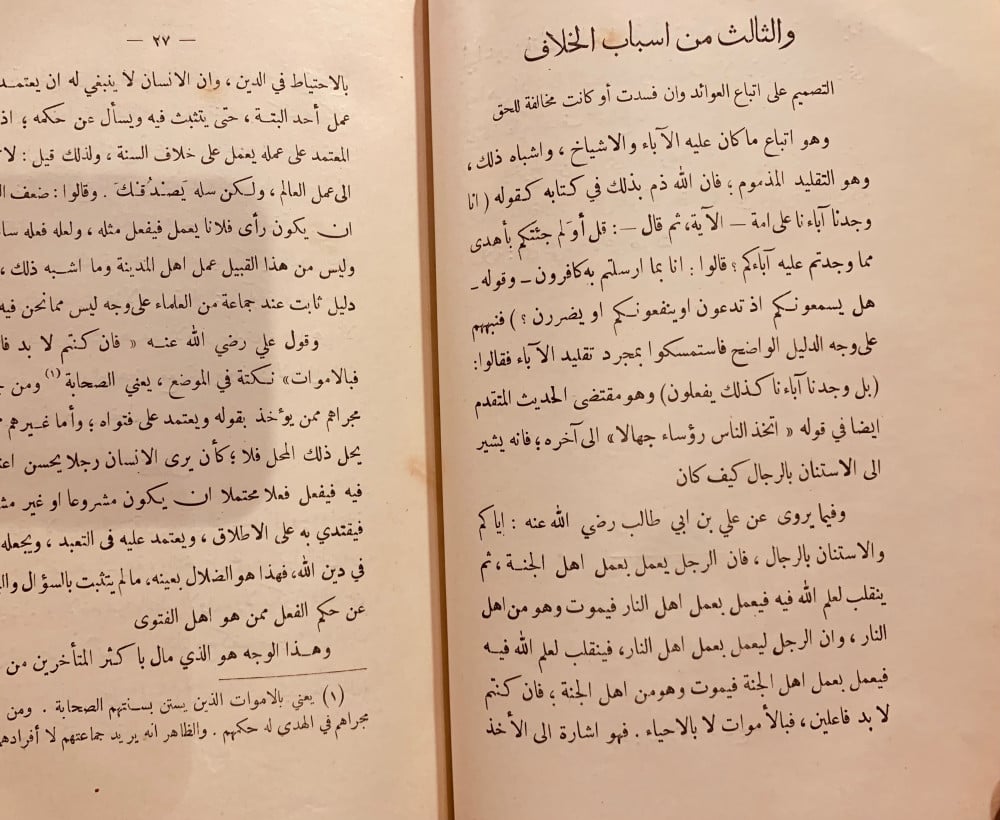 والثالث من اسباب الخلاف
التصميم على اتباع العوائد وان فسدت أو كانت مخالفة للحق
وهو اتباع ما كان عليه الآباء والاشياخ ، واشباه ذلك ،
وهو التقليد المذموم ؛ فان الله ذم بذلك في كتابه كقوله ( انا
وجدنا آباءنا على امة — الآية، ثم قال —: قل أولم جئتكم بأهدى
مما وجدتم عليه آباءكم ؟ قالوا : انا بما ارسلتم به كافرون — وقوله —
هل يسمعونكم اذ تدعون او ينفعونكم او يضررن ؟ ) فنبههم
على وجه الدليل الواضح فاستمسكوا بمجرد تقليد الآباء فقالوا:
(بل وجدنا آباءنا كذلك يفعلون) وهو مقتضى الحديث المتقدم
ايضا في قوله « اتخذ الناس رؤساء جهالا» الى آخره ؛ فانه يشير
الى الاستنان بالرجال كيف كان
وفيما يروى عن علي بن ابي طالب رضي الله عنه : إياكم
والاستنان بالرجال ، فان الرجل يعمل بعمل اهل الجنة ، ثم
ينقلب لعلم الله فيه فيعمل بعمل اهل النار فيموت وهو من اهل
النار ، وان الرجل ليعمل بعمل اهل النار، فينقلب لعلم الله فيه
فيعمل بعمل اهل الجنة فيموت وهو من اهل الجنة ؛ فان كنتم
لا بد فاعلين ، فبالأموات لا بالاحياء . فهو اشارة الى الأخذ
— ٢٧ —
بالاحتياط في الدين ، وان الانسان لا ينبغي له ان يعتمد
عمل أحد البتة ، حتى يتثبت فيه ويسأل عن حكمه ؛ اذ
المعتمد على عمله يعمل على خلاف السنة ، ولذلك قيل : لا
الى عمل العالم ، ولكن سله يَصْدُقْكَ . وقالوا : ضعف
ان يكون رأى فلانا يعمل فيفعل مثله ، ولعله فعله
وليس من هذا القبيل عمل اهل المدينة وما اشبه ذلك ،
دليل ثابت عند جماعة من العلماء على وجه ليس مما نحن فيه
وقول علي رضي الله عنه « فان كنتم لا بد
فبالاموات» نكتة في الموضع ، يعني الصحابة (١) ومن
مجراهم ممن يؤخذ بقوله ويعتمد على فتواه ؛ وأما غيرهم
يحل ذلك المحل فلا ؛ كأن يرى الانسان رجلا يحسن
فيه فيفعل فعلا محتملا ان يكون مشروعا او غير
فيقتدي به على الاطلاق ، ويعتمد عليه في التعبد ، ويجعله
في دين الله، فهذا هو الضلال بعينه، ما لم يتثبت بالسؤال
عن حكم الفعل ممن هو اهل الفتوى
وهذا الوجه هو الذي مال باكثر المتأخرين من
(١) يعني بالاموات الذين يستن بسنتهم الصحابة . ومن
مجراهم في الهدى له حكمهم . والظاهر انه يريد جماعتهم لا أفرادهم